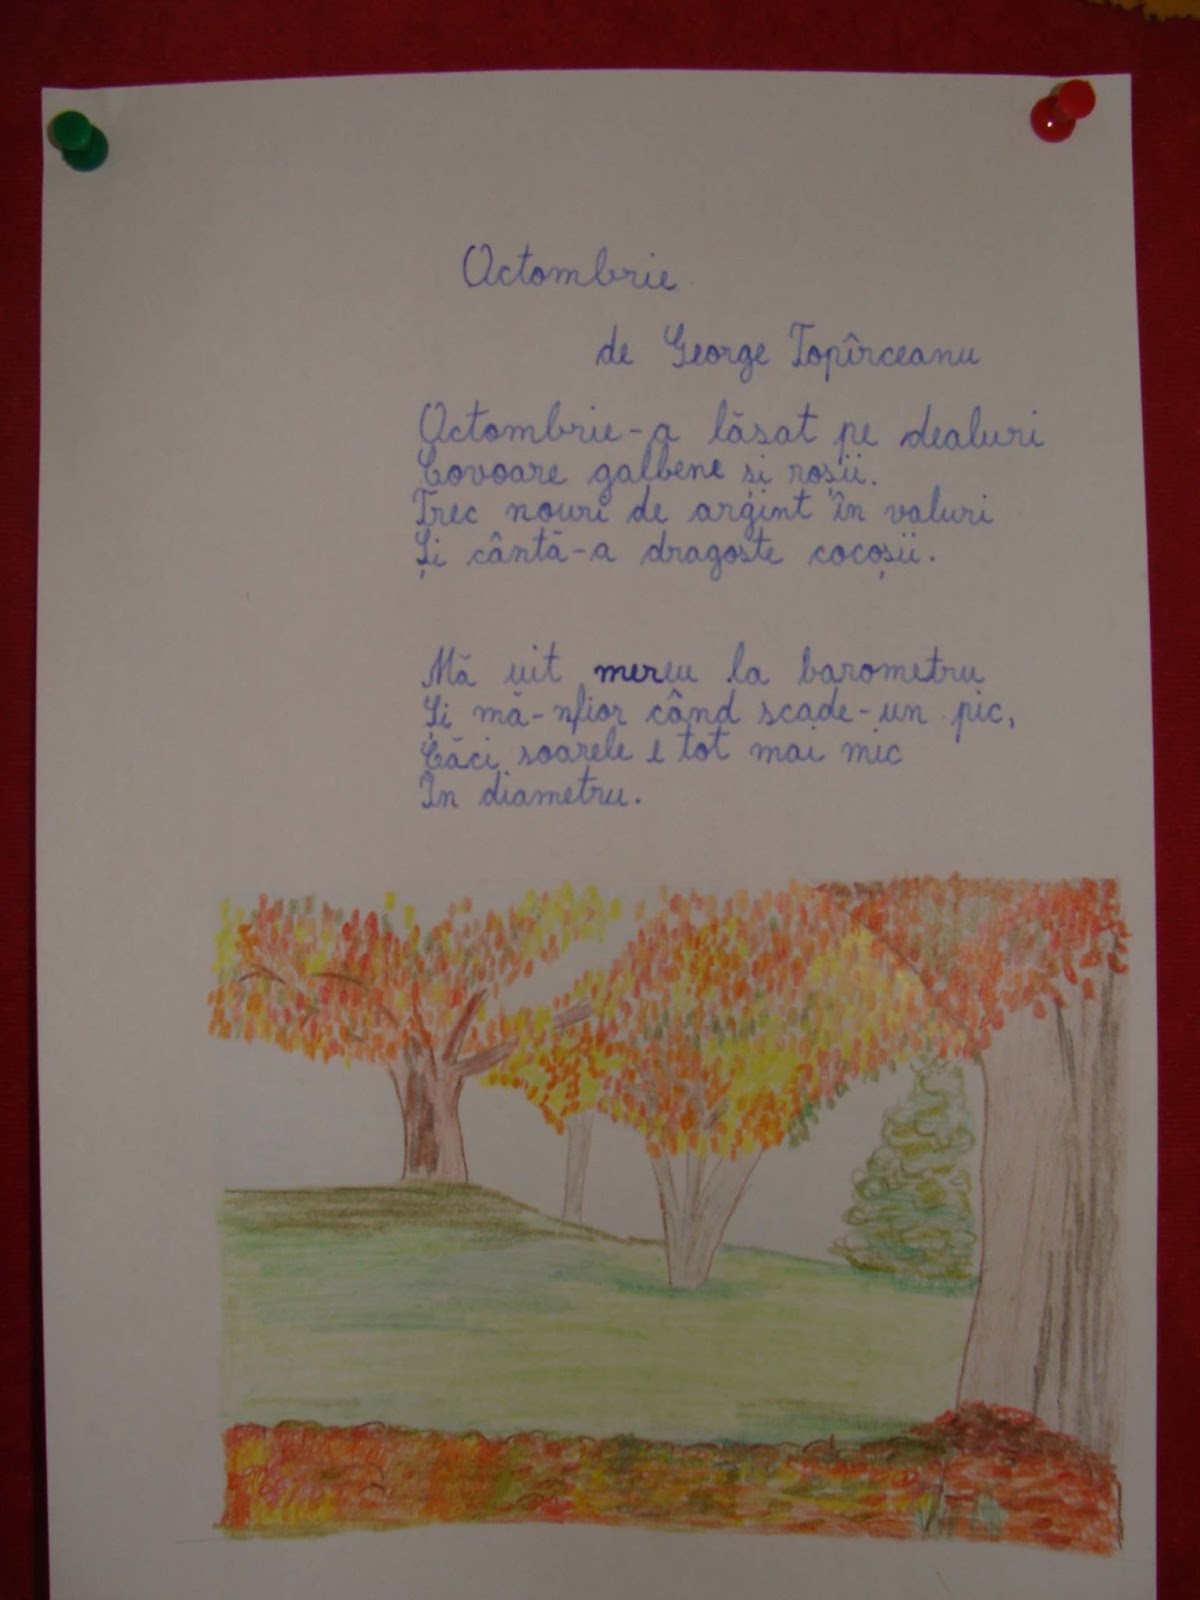 Octombrie
de George Topîrceanu
Octombrie-a lăsat pe dealuri
Covoare galbene și roșii.
Trec nouri de argint în valuri
Și cântă-a dragoste cocoșii.
Mă uit mereu la barometru
Și mă-nfior când scade-un pic,
Căci soarele e tot mai mic
În diametru.